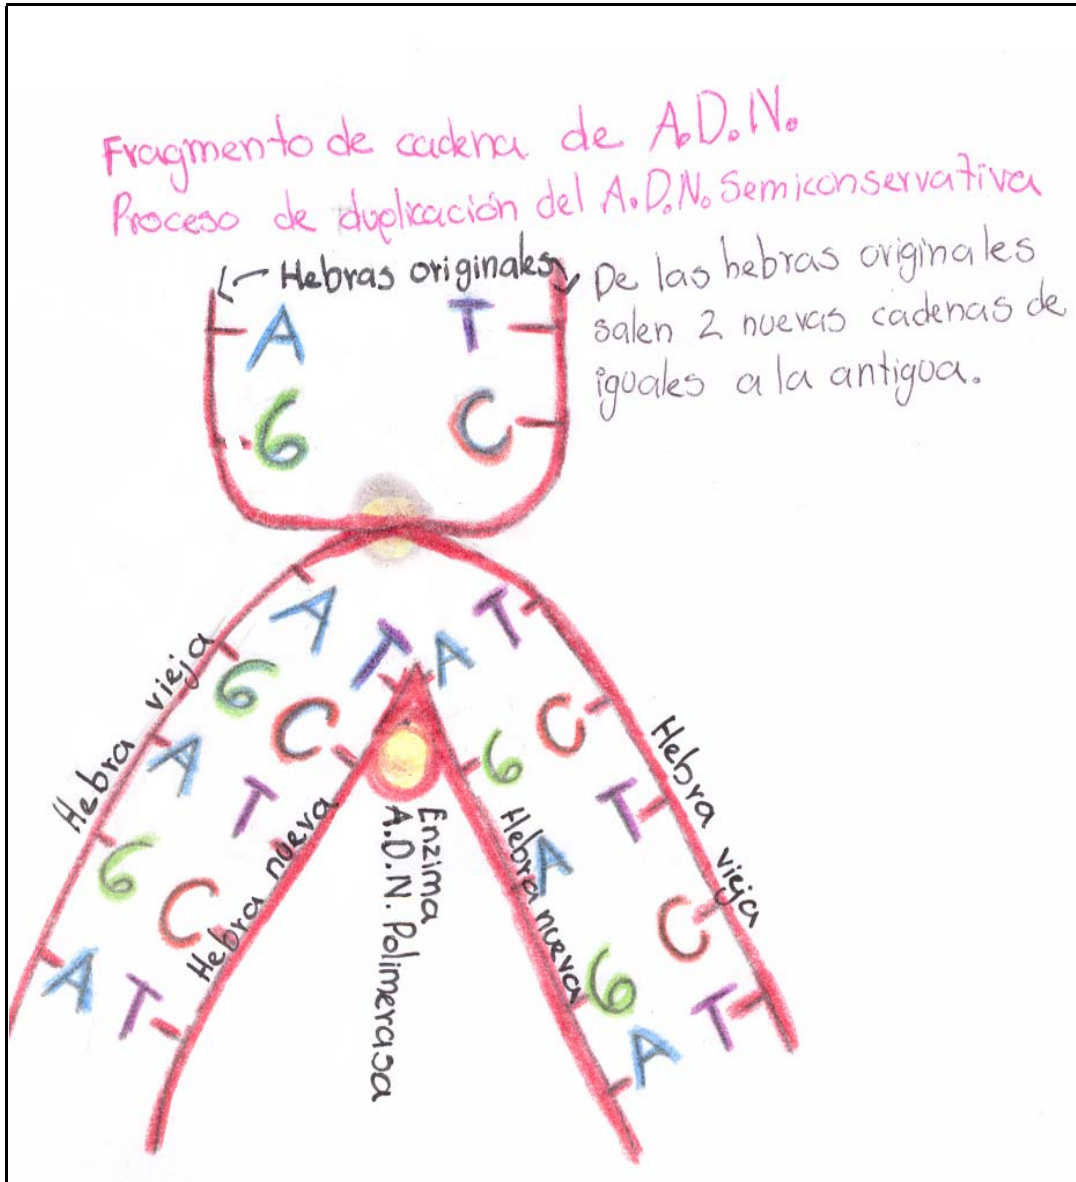 Fragmento de cadena de A.D.N.
Proceso de duplicación del A.D.N. Semiconservativa
Hebras originales
De las hebras originales
salen 2 nuevas cadenas de
iguales a la antigua.
A T
G C
A T A T
G C G C
A T A T
G C G C
A T A T
Hebra vieja
Hebra nueva
Enzima
A.D.N. Polimerasa
Hebra nueva
Hebra vieja